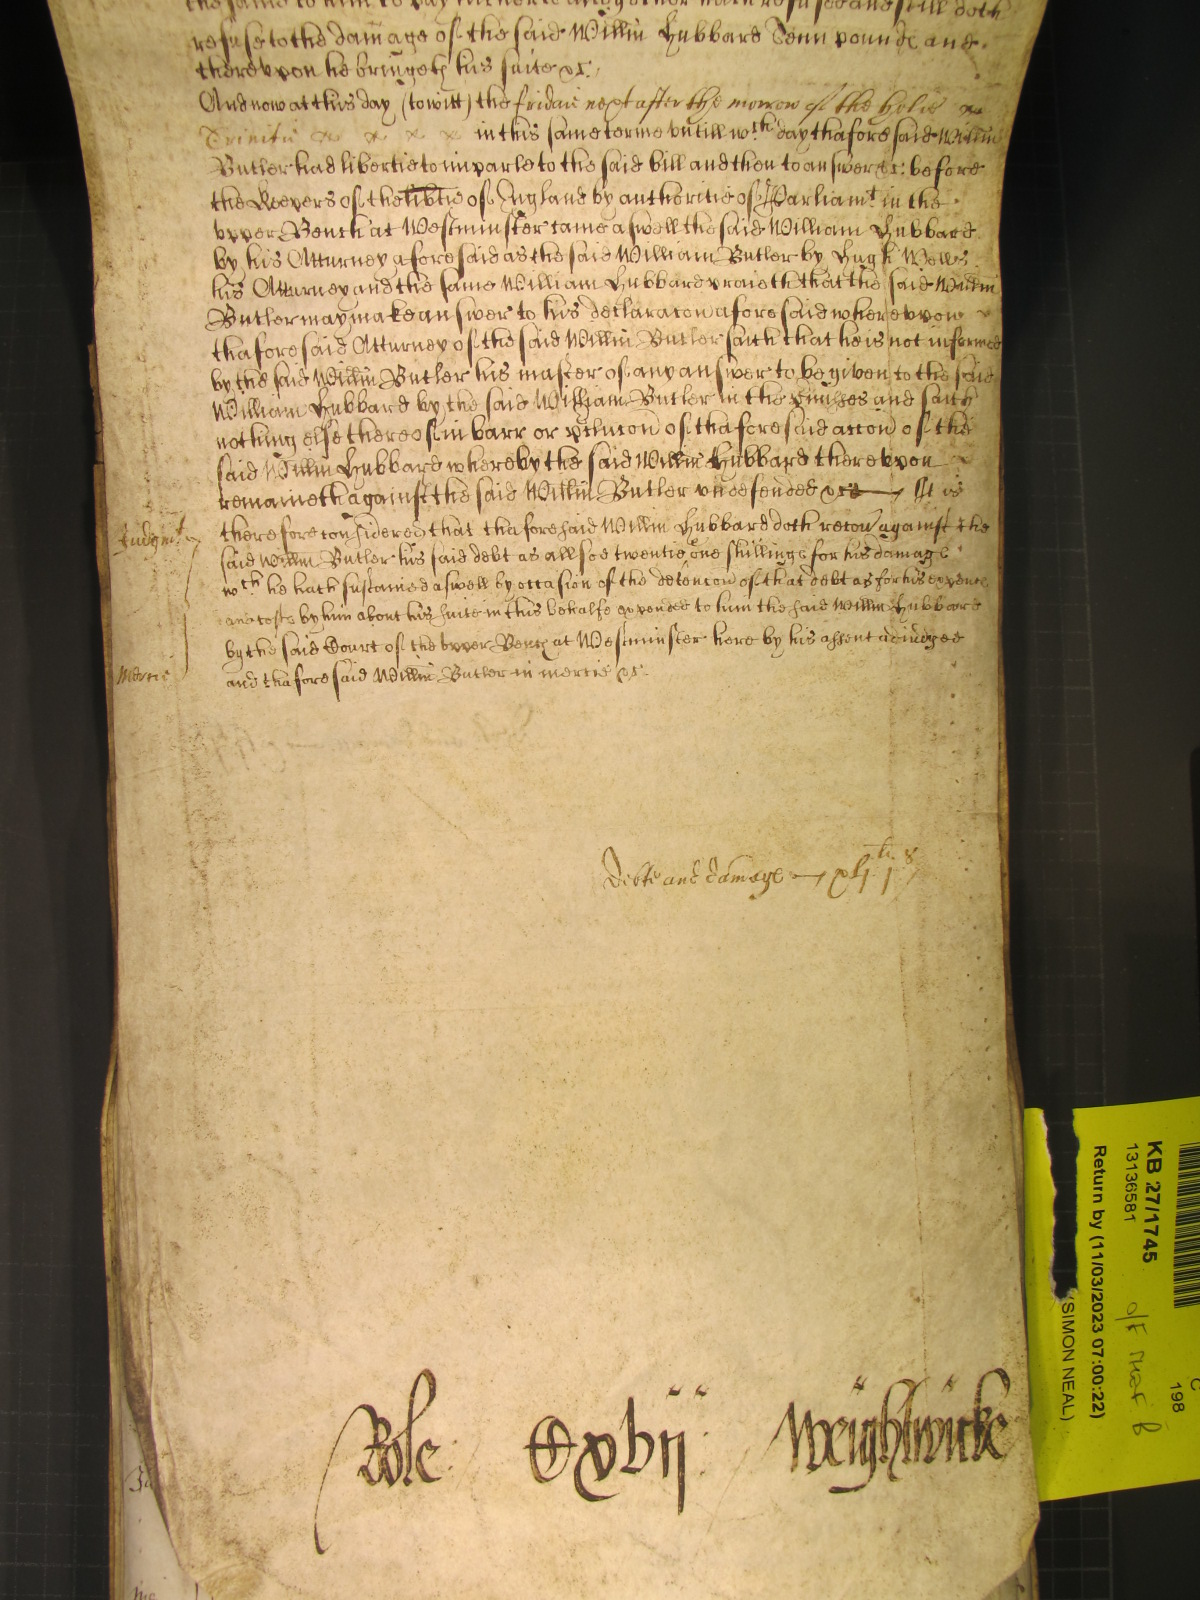 the same to him to pay hitherto altogether hath refused and still doth
refuse to the damage of the said Willm Hubbard Tenn pounds and
therevpon he bringeth his suite &c.
And now at this day (to witt) the fridaie next after the morrow of the holie
Trinitie x x x x in this same terme vntill wch day thaforesaid Willm
Butler had libertie to imparle to the said bill and then to answer &c: before
the Keepers of the libtie of England by authoritie of Parliamt in the
vpper Bench at Westminster came aswell the said William Hubbard
by his Atturney aforesaid as the said William Butler by Hugh Wells
his Atturney and the same William Hubbard praieth that the said Willm
Butler may make answer to his declaracon aforesaid wherevpon
thaforesaid Atturney of the said Willm Butler saith that he is not informed
by the said Willm Butler his master of any answer to be given to the said
William Hubbard by the said William Butler in the pmisses and saith
nothing else thereof in barr or pclucon of thaforesaid accon of the
said Willm Hubbard whereby the said Willm Hubbard therevpon
remaineth against the said Willm Butler vndefended &c It is
Judgmt
therefore considered that thaforesaid Willm Hubbard doth recou against the
said Willm Butler his said debt as allsoe twentie one shillings for his damage
wch he hath sustained aswell by occasion of the detencon of that debt as for his expence
and costs by him about his suite in this behalfe expended to him the said Willm Hubbard
by the said Court of the vpper Bench at Westminster here by his assent adiudged
Mercie
and thaforesaid Willm Butler in mercie &c.
Debte and damage xlj li j s
Role Cxvij Weightwicke
KB 27/1745
13136581
Return by (11/03/2023 07:00:22)
(SIMON NEAL)
198